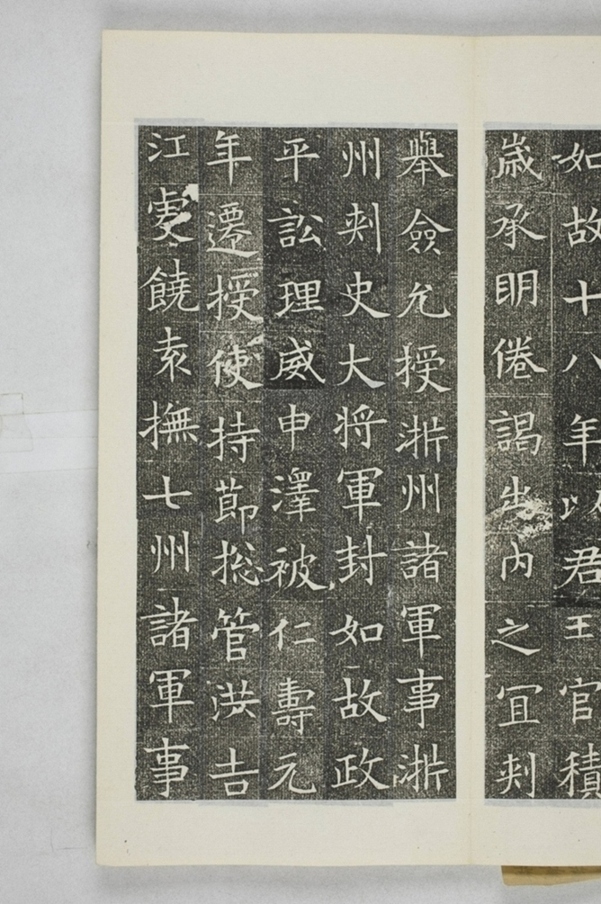 如故十八年以君王官積
歲承眀倦謁出内之宜刾
舉僉允授浙州諸軍事浙
州刾史大将軍封如故政
平訟理威申澤被仁壽元
年遷授使持莭捴管洪吉
江虔饒袁撫七州諸軍事